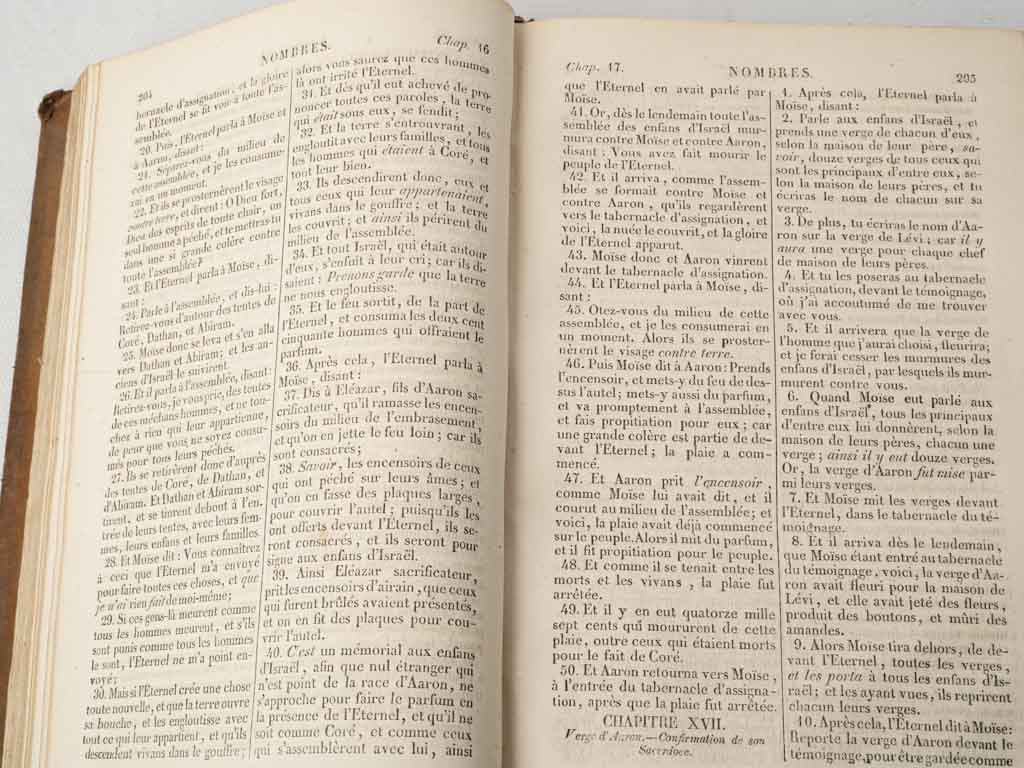 204
NOMBRES.
Chap. 16
bernacle d'assignation, et la gloire
de l'Eternel se fit voir à toute l'as-
semblée.
20. Puis, l'Eternel parla à Moïse et
à Aaron, disant:
21. Séparez-vous du milieu de
cette assemblée, et je les consume-
rai en un moment.
22. Et ils se prosternèrent le visage
contre terre, et dirent: O Dieu fort,
Dieu des esprits de toute chair, un
seul homme a péché, et te mettras-tu
dans une si grande colère contre
toute l'assemblée?
23. Et l'Eternel parla à Moïse, di-
sant:
24. Parle à l'assemblée, et dis-lui:
Retirez-vous d'autour des tentes de
Coré, Dathan, et Abiram.
25. Moïse donc se leva et s'en alla
vers Dathan et Abiram; et les an-
ciens d'Israël le suivirent.
26. Et il parla à l'assemblée, disant:
Retirez-vous, je vous prie, des tentes
de ces méchans hommes, et ne tou-
chez à rien qui leur appartienne,
de peur que vous ne soyez consu-
més pour tous leurs péchés.
27. Ils se retirèrent donc d'auprès
des tentes de Coré, de Dathan, et
d'Abiram. Et Dathan et Abiram sor-
tirent, et se tinrent debout à l'en-
trée de leurs tentes, avec leurs fem-
mes, leurs enfans et leurs familles.
28. Et Moïse dit: Vous connaîtrez
à ceci que l'Eternel m'a envoyé
pour faire toutes ces choses, et que
je n'ai rien fait de moi-même;
29. Si ces gens-là meurent comme
tous les hommes meurent, et s'ils
sont punis comme tous les hommes
le sont, l'Eternel ne m'a point en-
voyé;
30. Mais si l'Eternel crée une chose
toute nouvelle, et que la terre ouvre
sa bouche, et les engloutisse avec
tout ce qui leur appartient, et qu'ils
descendent vivans dans le gouffre;
alors vous saurez que ces hommes
là ont irrité l'Eternel.
31. Et dès qu'il eut achevé de pro-
noncer toutes ces paroles, la terre
qui était sous eux, se fendit;
32. Et la terre s'entrouvrant, les
engloutit avec leurs familles, et tous
les hommes qui étaient à Coré, et
tout leur bien.
33. Ils descendirent donc, eux et
tous ceux qui leur appartenaient,
vivans dans le gouffre; et la terre
les couvrit; et ainsi ils périrent du
milieu de l'assemblée.
34. Et tout Israël, qui était autour
d'eux, s'enfuit à leur cri; car ils di-
saient: Prenons garde que la terre
ne nous engloutisse.
35. Et le feu sortit, de la part de
l'Eternel, et consuma les deux cent
cinquante hommes qui offraient le
parfum.
36. Après cela, l'Eternel parla à
Moïse, disant:
37. Dis à Eléazar, fils d'Aaron sa-
crificateur, qu'il ramasse les encen-
soirs du milieu de l'embrasement,
et qu'on en jette le feu loin; car ils
sont consacrés;
38. Savoir, les encensoirs de ceux
qui ont péché sur leurs âmes; et
qu'on en fasse des plaques larges,
pour couvrir l'autel; puisqu'ils les
ont offerts devant l'Eternel, ils se-
ront consacrés, et ils seront pour
signe aux enfans d'Israël.
39. Ainsi Eléazar sacrificateur,
prit les encensoirs d'airain, que ceux
qui furent brûlés avaient présentés,
et on en fit des plaques pour cou-
vrir l'autel.
40. C'est un mémorial aux enfans
d'Israël, afin que nul étranger qui
n'est point de la race d'Aaron, ne
s'approche pour faire le parfum en
la présence de l'Eternel, et qu'il ne
soit comme Coré, et comme ceux
qui s'assemblèrent avec lui, ainsi
Chap. 17.
NOMBRES.
205
que l'Eternel en avait parlé par
Moïse.
41. Or, dès le lendemain toute l'as-
semblée des enfans d'Israël mur-
mura contre Moïse et contre Aaron,
disant: Vous avez fait mourir le
peuple de l'Eternel.
42. Et il arriva, comme l'assem-
blée se formait contre Moïse et
contre Aaron, qu'ils regardèrent
vers le tabernacle d'assignation, et
voici, la nuée le couvrit, et la gloire
de l'Eternel apparut.
43. Moïse donc et Aaron vinrent
devant le tabernacle d'assignation.
44. Et l'Eternel parla à Moïse, di-
sant:
45. Otez-vous du milieu de cette
assemblée, et je les consumerai en
un moment. Alors ils se proster-
nèrent le visage contre terre.
46. Puis Moïse dit à Aaron: Prends
l'encensoir, et mets-y du feu de des-
sus l'autel; mets-y aussi du parfum,
et va promptement à l'assemblée,
et fais propitiation pour eux; car
une grande colère est partie de de-
vant l'Eternel; la plaie a com-
mencé.
47. Et Aaron prit l'encensoir,
comme Moïse lui avait dit, et il
courut au milieu de l'assemblée; et
voici, la plaie avait déjà commencé
sur le peuple. Alors il mit du parfum,
et il fit propitiation pour le peuple.
48. Et comme il se tenait entre les
morts et les vivans, la plaie fut
arrêtée.
49. Et il y en eut quatorze mille
sept cents qui moururent de cette
plaie, outre ceux qui étaient morts
pour le fait de Coré.
50. Et Aaron retourna vers Moïse,
à l'entrée du tabernacle d'assigna-
tion, après que la plaie fut arrêtée.
CHAPITRE XVII.
Verge d'Aaron.—Confirmation de son
Sacerdoce.
1. Après cela, l'Eternel parla à
Moïse, disant:
2. Parle aux enfans d'Israël, et
prends une verge de chacun d'eux,
selon la maison de leur père, sa-
voir, douze verges de tous ceux qui
sont les principaux d'entre eux, se-
lon la maison de leurs pères, et tu
écriras le nom de chacun sur sa
verge.
3. De plus, tu écriras le nom d'Aa-
ron sur la verge de Lévi; car il y
aura une verge pour chaque chef
de maison de leurs pères.
4. Et tu les poseras au tabernacle
d'assignation, devant le témoignage,
où j'ai accoutumé de me trouver
avec vous.
5. Et il arrivera que la verge de
l'homme que j'aurai choisi, fleurira;
et je ferai cesser les murmures des
enfans d'Israël, par lesquels ils mur-
murent contre vous.
6. Quand Moïse eut parlé aux
enfans d'Israël, tous les principaux
d'entre eux lui donnèrent, selon la
maison de leurs pères, chacun une
verge; ainsi il y eut douze verges.
Or, la verge d'Aaron fut mise par-
mi leurs verges.
7. Et Moïse mit les verges devant
l'Eternel, dans le tabernacle du té-
moignage.
8. Et il arriva dès le lendemain,
que Moïse étant entré au tabernacle
du témoignage, voici, la verge d'Aa-
ron avait fleuri pour la maison de
Lévi, et elle avait jeté des fleurs,
produit des boutons, et mûri des
amandes.
9. Alors Moïse tira dehors, de de-
vant l'Eternel, toutes les verges,
et les porta à tous les enfans d'Is-
raël; et les ayant vues, ils reprirent
chacun leurs verges.
10. Après cela, l'Eternel dit à Moïse:
Reporte la verge d'Aaron devant le
témoignage, pour être gardée comme